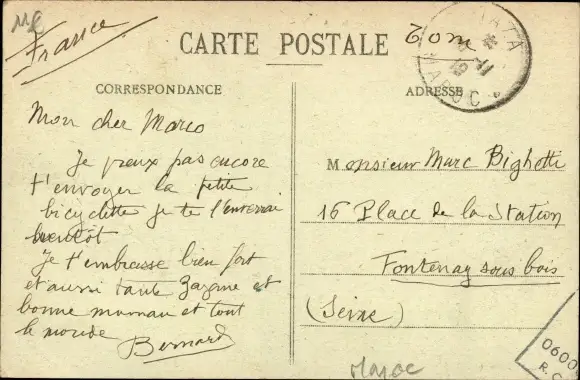 France
CARTE POSTALE
Tom
MAROC
CORRESPONDANCE
ADRESSE
Mon cher Marco
Je peux pas encore
t'envoyer la petite
bicyclette je te l'enverrai
bientôt
Je t'embrasse bien fort
et aussi tante Zazame et
bonne maman et tout
le monde
Bernard
Monsieur Marc Bighetti
16 Place de la Station
Fontenay sous bois
(Seine)
Maroc
0600
R.C